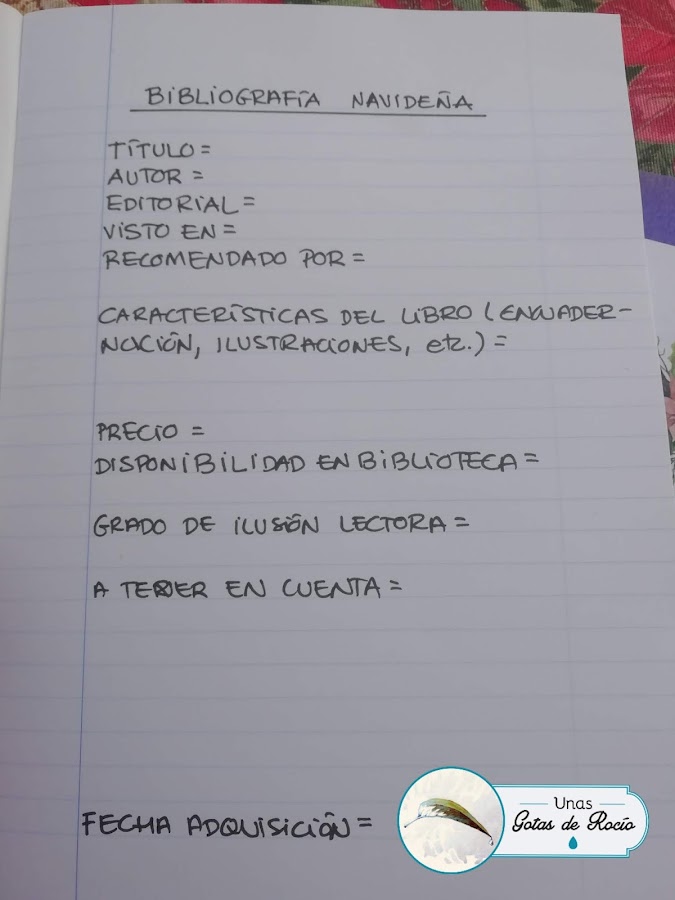 BIBLIOGRAFÍA NAVIDEÑA
TÍTULO =
AUTOR =
EDITORIAL =
VISTO EN =
RECOMENDADO POR =
CARACTERÍSTICAS DEL LIBRO (ENCUADER-
NACIÓN, ILUSTRACIONES, etc.) =
PRECIO =
DISPONIBILIDAD EN BIBLIOTECA =
GRADO DE ILUSIÓN LECTORA =
A TENER EN CUENTA =
FECHA ADQUISICIÓN =
Unas
Gotas de Rocío